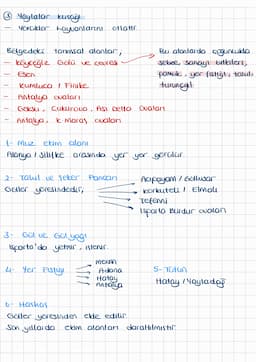 ③ Yaylalar kuşağı
- Yörükler hayvanlarını otlatır.
Bölgedeki tarımsal alanlar,
- Köyceğiz Gölü ve çevresi
- Eşen
- Kumluca / Finike
- Antalya ovaları
- Göksu, Çukurova, Asi Delta Ovaları
- Antalya, K. Maraş ovaları
Bu alanlarda çoğunlukla
sebze, sanayi bitkileri,
pamuk, yer fıstığı, tahıl,
turunçgil
1- Muz ekim alanı
Alanya / Silifke arasında yer yer görülür.
2- Tahıl ve Şeker Pancarı
Göller yöresindedir,
Acıpayam / Gölhisar
Korkuteli / Elmalı
Tefenni
Isparta Burdur ovaları
3- Gül ve Gül yağı
Isparta'da yetişir, işlenir.
4- Yer Fıstığı
Mersin
Adana
Hatay
Antalya
5- Tütün
Hatay / Yayladağ
6- Haşhaş
Göller yöresinden elde edilir.
Son yıllarda ekim alanları daraltılmıştır.